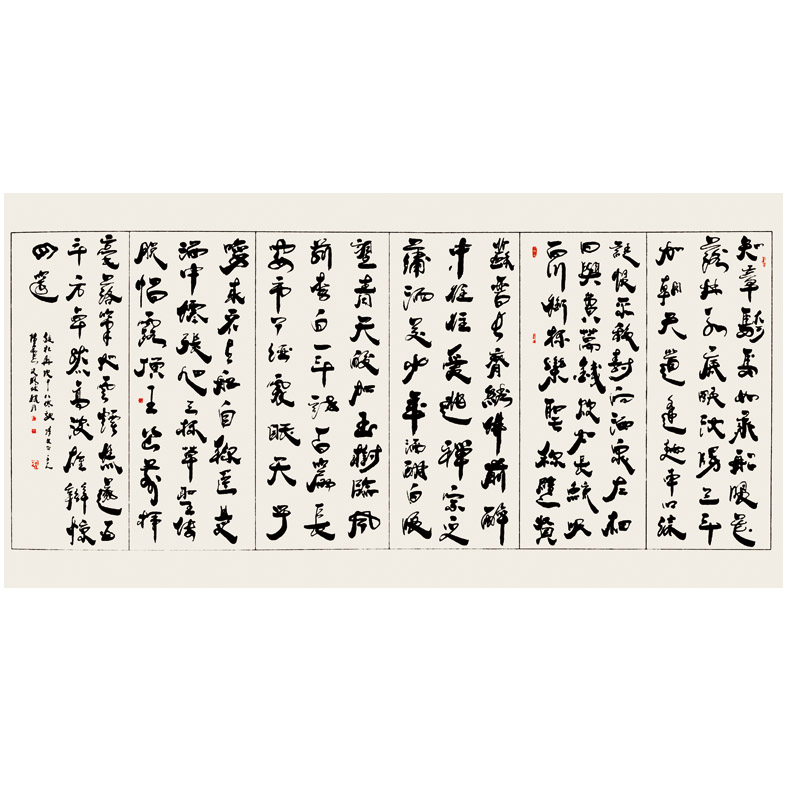 知章騎馬似乘船眼花
落井水底眠汝陽三斗
始朝天道逢麴車口流
涎恨不移封向酒泉左相
日興費萬錢飲如長鯨吸
百川銜杯樂聖稱避賢
蘇晉長齋繡佛前醉
中往往愛逃禪宗之
瀟灑美少年舉觴白眼
望青天皎如玉樹臨風
前李白一斗詩百篇長
安市上酒家眠天子
呼來不上船自稱臣是
酒中仙張旭三杯草聖傳
脫帽露頂王公前揮
毫落紙如雲煙焦遂五
斗方卓然高談雄辯驚
四筵
杜甫飲中八仙歌